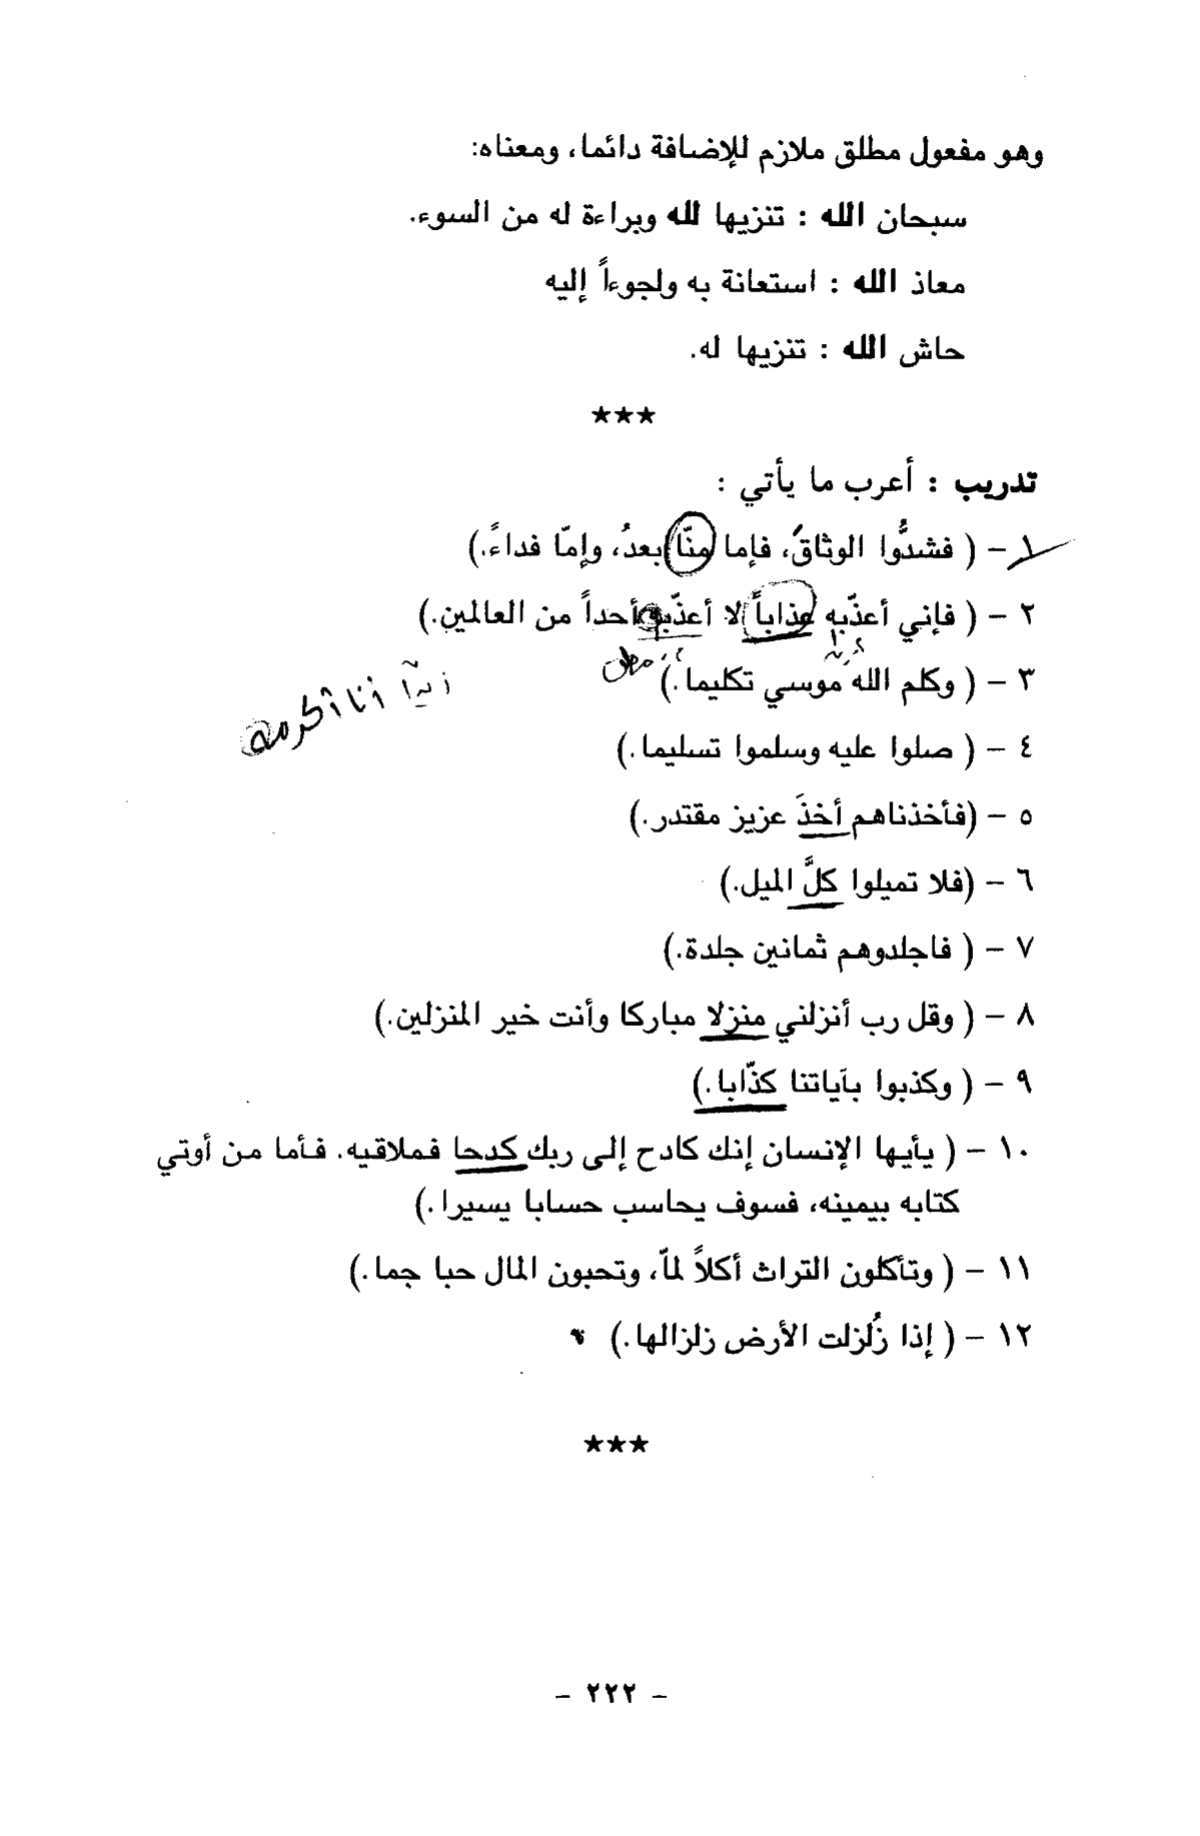 وهو مفعول مطلق ملازم للإضافة دائما، ومعناه:
سبحان الله : تنزيها لله وبراءة له من السوء.
معاذ الله : استعانة به ولجوءاً إليه
حاش الله : تنزيها له.
***
تدريب : أعرب ما يأتي :
١ - ( فشدُّوا الوثاقَ، فإما منّا بعدُ، وإمّا فداءً.)
٢ - ( فإني أعذّبه عذاباً لا أعذّبه أحداً من العالمين.)
٣ - ( وكلم الله موسي تكليما.)
زيدًا أنا أكرمه
٤ - ( صلوا عليه وسلموا تسليما.)
٥ - (فأخذناهم أخذَ عزيز مقتدر.)
٦ - (فلا تميلوا كلَّ الميل.)
٧ - ( فاجلدوهم ثمانين جلدة.)
٨ - ( وقل رب أنزلني منزلا مباركا وأنت خير المنزلين.)
٩ - ( وكذبوا بآياتنا كذّابا.)
١٠ - ( يأيها الإنسان إنك كادح إلى ربك كدحا فملاقيه. فأما من أوتي
كتابه بيمينه، فسوف يحاسب حسابا يسيرا.)
١١ - ( وتأكلون التراث أكلاً لمّا، وتحبون المال حبا جما.)
١٢ - ( إذا زُلزلت الأرض زلزالها.)
***
- ٢٢٢ -